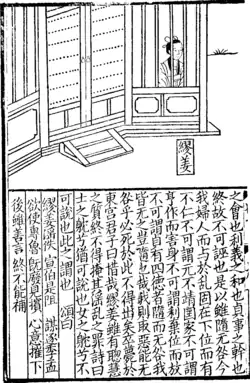 繆姜
之會也利義之和也貞事之幹也
終故不可誣也是以雖隨无咎今
我婦人而與於亂固在下位而有
不仁不可謂元不靖國家不可謂
亨作而害身不可謂利棄位而放
不可謂貞有四德者隨而无咎我
皆无之豈隨也哉我則取惡能无
咎乎必死於此不得出矣卒薨於
東宮君子曰惜哉繆姜雖有聰慧
之質終不得掩其淫亂之罪詩曰
士之耽兮猶可說也女之耽兮不
可說也此之謂也 頌曰
繆姜淫泆 宣伯是阻 謀逐季孟
欲使專魯 既廢見擯 心意摧下
後雖善言 終不能補